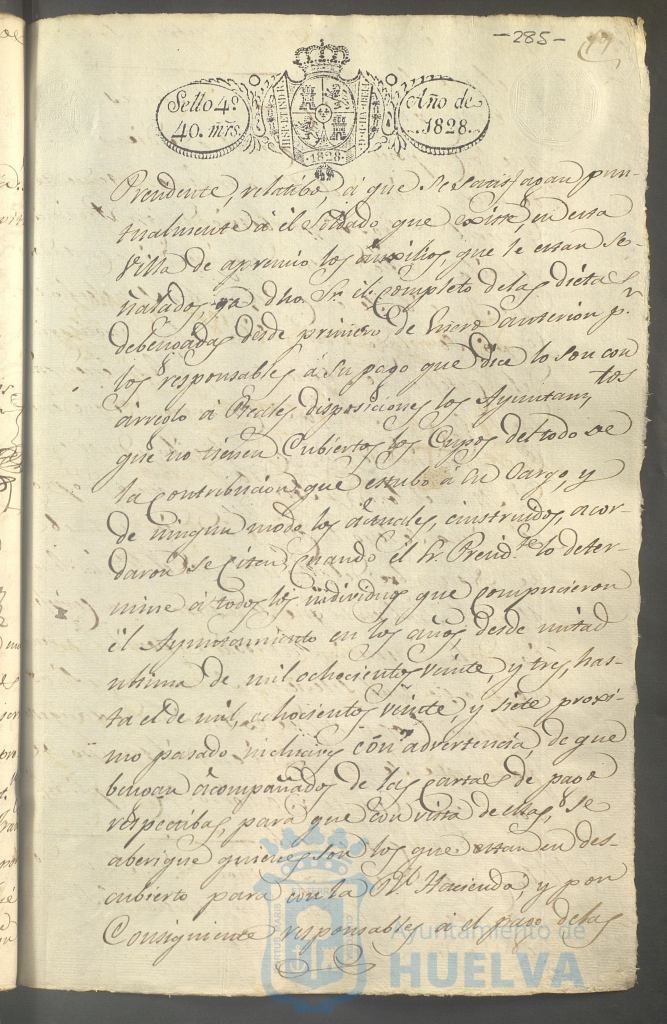 -285-
Sello 4º
40. mrs.
HISP. ET IND. R.
Año de
1828.
1828
Prendente, relatibo, á que se satisfagan pun-
tualmente á él Soldado que existe, en esta
Villa de apremio los auxilios, que le estan se-
ñalados, ya dho. Sr. él completo de las dietas
debengadas desde primero de Enero anterior pr.
los responsables á su pago que dice lo son con
arreglo á Reales disposiciones los Ayuntamtos
que no tienen Cubiertos los Cupos del todo de
la Contribucion que estubo á su Cargo, y
de ningun modo los áctuales, é instruidos, acor-
daron se Citen, quando él Sr. Presidte. lo deter-
mine á todos los individuos que compucieron
él Ayuntamiento en los años, desde mitad
ultima de mil ochocientos veinte, y tres, has-
ta el de mil, ochocientos veinte, y siete proxi-
mo pasado inclusives con advertencia de que
bengan ácompañados de las cartas de pago
respectibas, para que con vista de ellas, se
aberigue quienes son los que estan en des-
cubierto para con la Rl. Hacienda y por
Consiguiente responsables á él pago de las
Ayuntamiento de
HUELVA